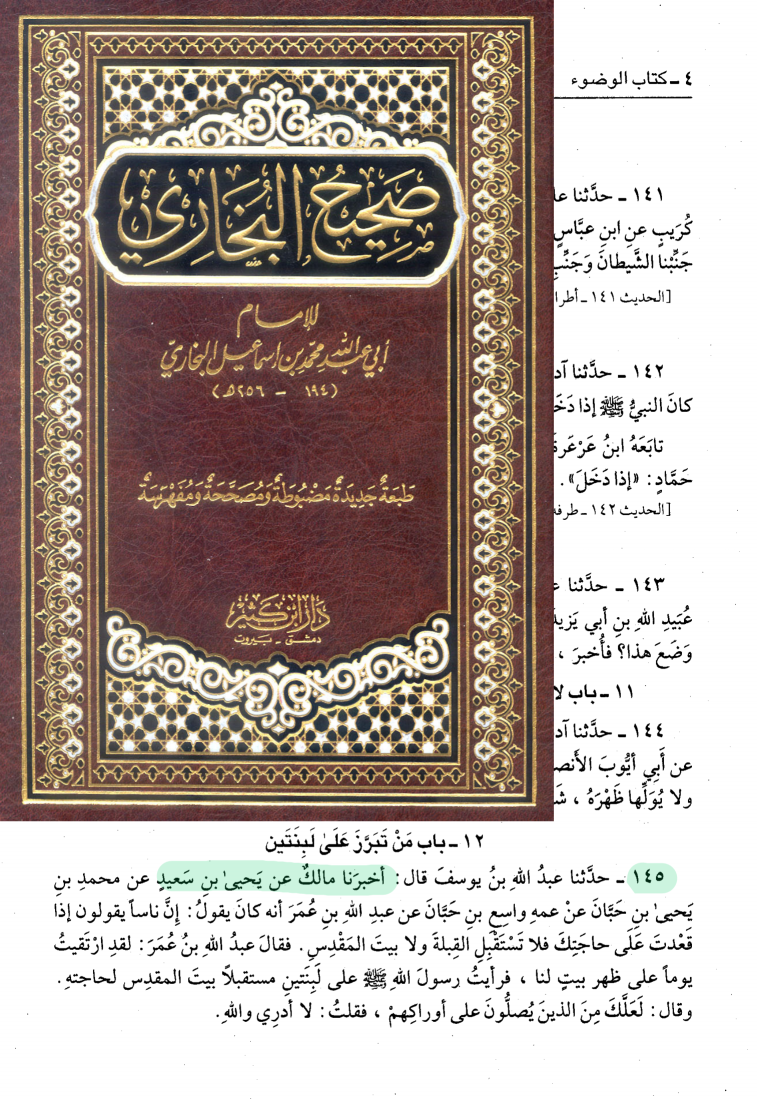 صَحِيحُ البُخَارِي
للإمام
أبي عبد الله محمد بن إسماعيل البخاري
(١٩٤ - ٢٥٦هـ)
طَبعَةٌ جَديدَةٌ مَضبُوطَةٌ وَمُصَحَّحَةٌ وَمُفَهْرَسَةٌ
دار ابن كثير
دمشق - بيروت
٤ ـ كتاب الوضوء
١٤١ ـ حدَّثنا
كُرَيبٍ عنِ ابنِ عبَّاسٍ
جَنِّبْنا الشَّيطانَ وَجَنِّبِ
[الحديث ١٤١ ـ أطرا
١٤٢ ـ حدَّثنا آد
كانَ النبيُّ ﷺ إذا دَخَ
تابَعَهُ ابنُ عَرْعَرة
حَمَّادٍ: «إذا دَخَلَ».
[الحديث ١٤٢ ـ طرفه
١٤٣ ـ حدَّثنا
عُبَيدِ اللهِ بنِ أبي يَزيدَ
وَضَعَ هذا؟ فأُخبرَ ،
١١ ـ باب لا
١٤٤ ـ حدَّثنا آد
عن أَبِي أيُّوبَ الأَنصا
ولا يُوَلِّها ظَهْرَهُ ،
١٢ ـ باب مَنْ تَبَرَّزَ عَلَىٰ لَبِنَتَين
١٤٥ ـ حدَّثنا عبدُ اللهِ بنُ يوسفَ قال: أخبرَنا مالكٌ عن يَحيىٰ بنِ سَعيدٍ عن محمدِ بنِ
يَحيىٰ بنِ حَبَّانَ عنْ عمهِ واسِعِ بنِ حَبَّانَ عن عبدِ اللهِ بنِ عُمَرَ أنه كانَ يقولُ: إنَّ ناساً يقولون إذا
قَعْدتَ عَلَى حاجَتِكَ فلا تَسْتَقْبِلِ القِبلةَ ولا بيتَ المَقْدِسِ. فقالَ عبدُ اللهِ بنُ عُمَرَ: لقدِ ارْتَقيتُ
يوماً على ظهر بيتٍ لنا ، فرأيتُ رسولَ اللهِ ﷺ على لَبِنَتينِ مستقبلاً بيتَ المقدِس لحاجتهِ.
وقال: لَعَلَّكَ مِنَ الذينَ يُصلُّونَ على أوراكِهمْ ، فقلتُ: لا أدرِي واللهِ.